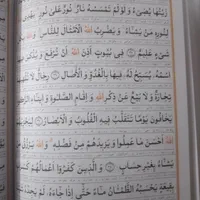 زَيْتُهَا يُضِيءُ وَلَوْ لَمْ تَمْسَسْهُ نَارٌ نُورٌ عَلَى نُورٍ يَهْدِي اللَّهُ
لِنُورِهِ مَنْ يَشَاءُ وَيَضْرِبُ اللَّهُ الْأَمْثَالَ لِلنَّاسِ وَاللَّهُ بِكُلِّ
شَيْءٍ عَلِيمٌ فِي بُيُوتٍ أَذِنَ اللَّهُ أَنْ تُرْفَعَ وَيُذْكَرَ فِيهَا
اسْمُهُ يُسَبِّحُ لَهُ فِيهَا بِالْغُدُوِّ وَالْآصَالِ رِجَالٌ لَا تُلْهِيهِمْ
تِجَارَةٌ وَلَا بَيْعٌ عَنْ ذِكْرِ اللَّهِ وَإِقَامِ الصَّلَوٰةِ وَإِيتَاءِ الزَّكَوٰةِ
يَخَافُونَ يَوْمًا تَتَقَلَّبُ فِيهِ الْقُلُوبُ وَالْأَبْصَارُ لِيَجْزِيَهُمُ
اللَّهُ أَحْسَنَ مَا عَمِلُوا وَيَزِيدَهُمْ مِنْ فَضْلِهِ وَاللَّهُ يَرْزُقُ مَنْ
يَشَاءُ بِغَيْرِ حِسَابٍ وَالَّذِينَ كَفَرُوا أَعْمَالُهُمْ كَسَرَابٍ
بِقِيعَةٍ يَحْسَبُهُ الظَّمْآنُ مَاءً حَتَّى إِذَا جَاءَهُ لَمْ يَجِدْهُ